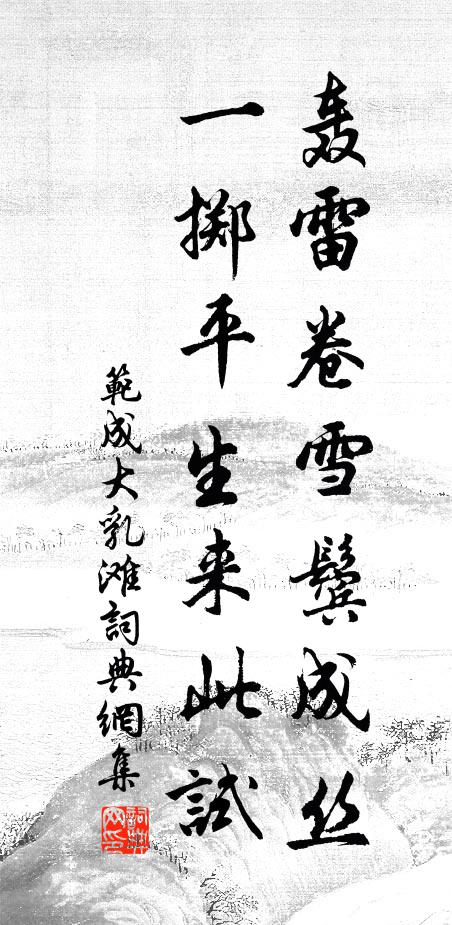 轰雷卷雪鬓成丝
一掷平生来此試
範成大乳滩詞典網集